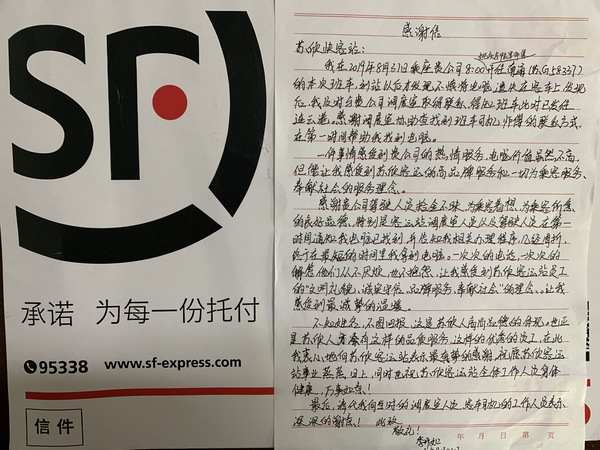 SF
承诺 为每一份托付
95338 www.sf-express.com
信件
感谢信
苏欣快客站:
我在2019年8月31日乘座贵公司8:00开往南通(苏
的本次班车,到站以后才发现不慎将电脑遗失在客车上,发现
后,我及时与贵公司调度室取得联系,得知班车此时已发往
连云港,感谢调度室协助查找到班车司机师傅的联系方式,
在第一时间帮助我找到电脑。
一件事情感受到贵公司的热情服务,电脑价值虽然不高,
但能让我感受到苏欣客运的高品牌服务和一切为乘客服务、
奉献社会的服务理念。
感谢贵公司驾驶人员拾金不昧,为乘客着想、为乘客着急
的良好品德,特别是客运站调度室人员以及驾驶人员在第一
时间通知我电脑已找到,并告知我相关办理程序,几经周折,
终于在最短的时间里我拿到电脑。一次次的电话,一次次的
解答,他们从不厌烦,也不抱怨,让我感受到苏欣客运站员工
的“文明礼貌、诚实守信、品牌服务、奉献社会”的理念。让我
感受到最诚挚的温暖。
不知姓名,不图回报,这是苏欣人高尚品德的体现,也正
是苏欣人有着这样的品质服务,这样的优秀的员工,在此
我衷心地向苏欣客运站表示最真挚的感谢,祝愿苏欣客运
站事业蒸蒸日上,同时也祝苏欣客运站全体工作人员身体
健康,万事如意!
最后,请代我向当时的调度室人员、客车司机的工作人员表示
深深的谢意! 此致
敬礼!
年 月 日 第 页